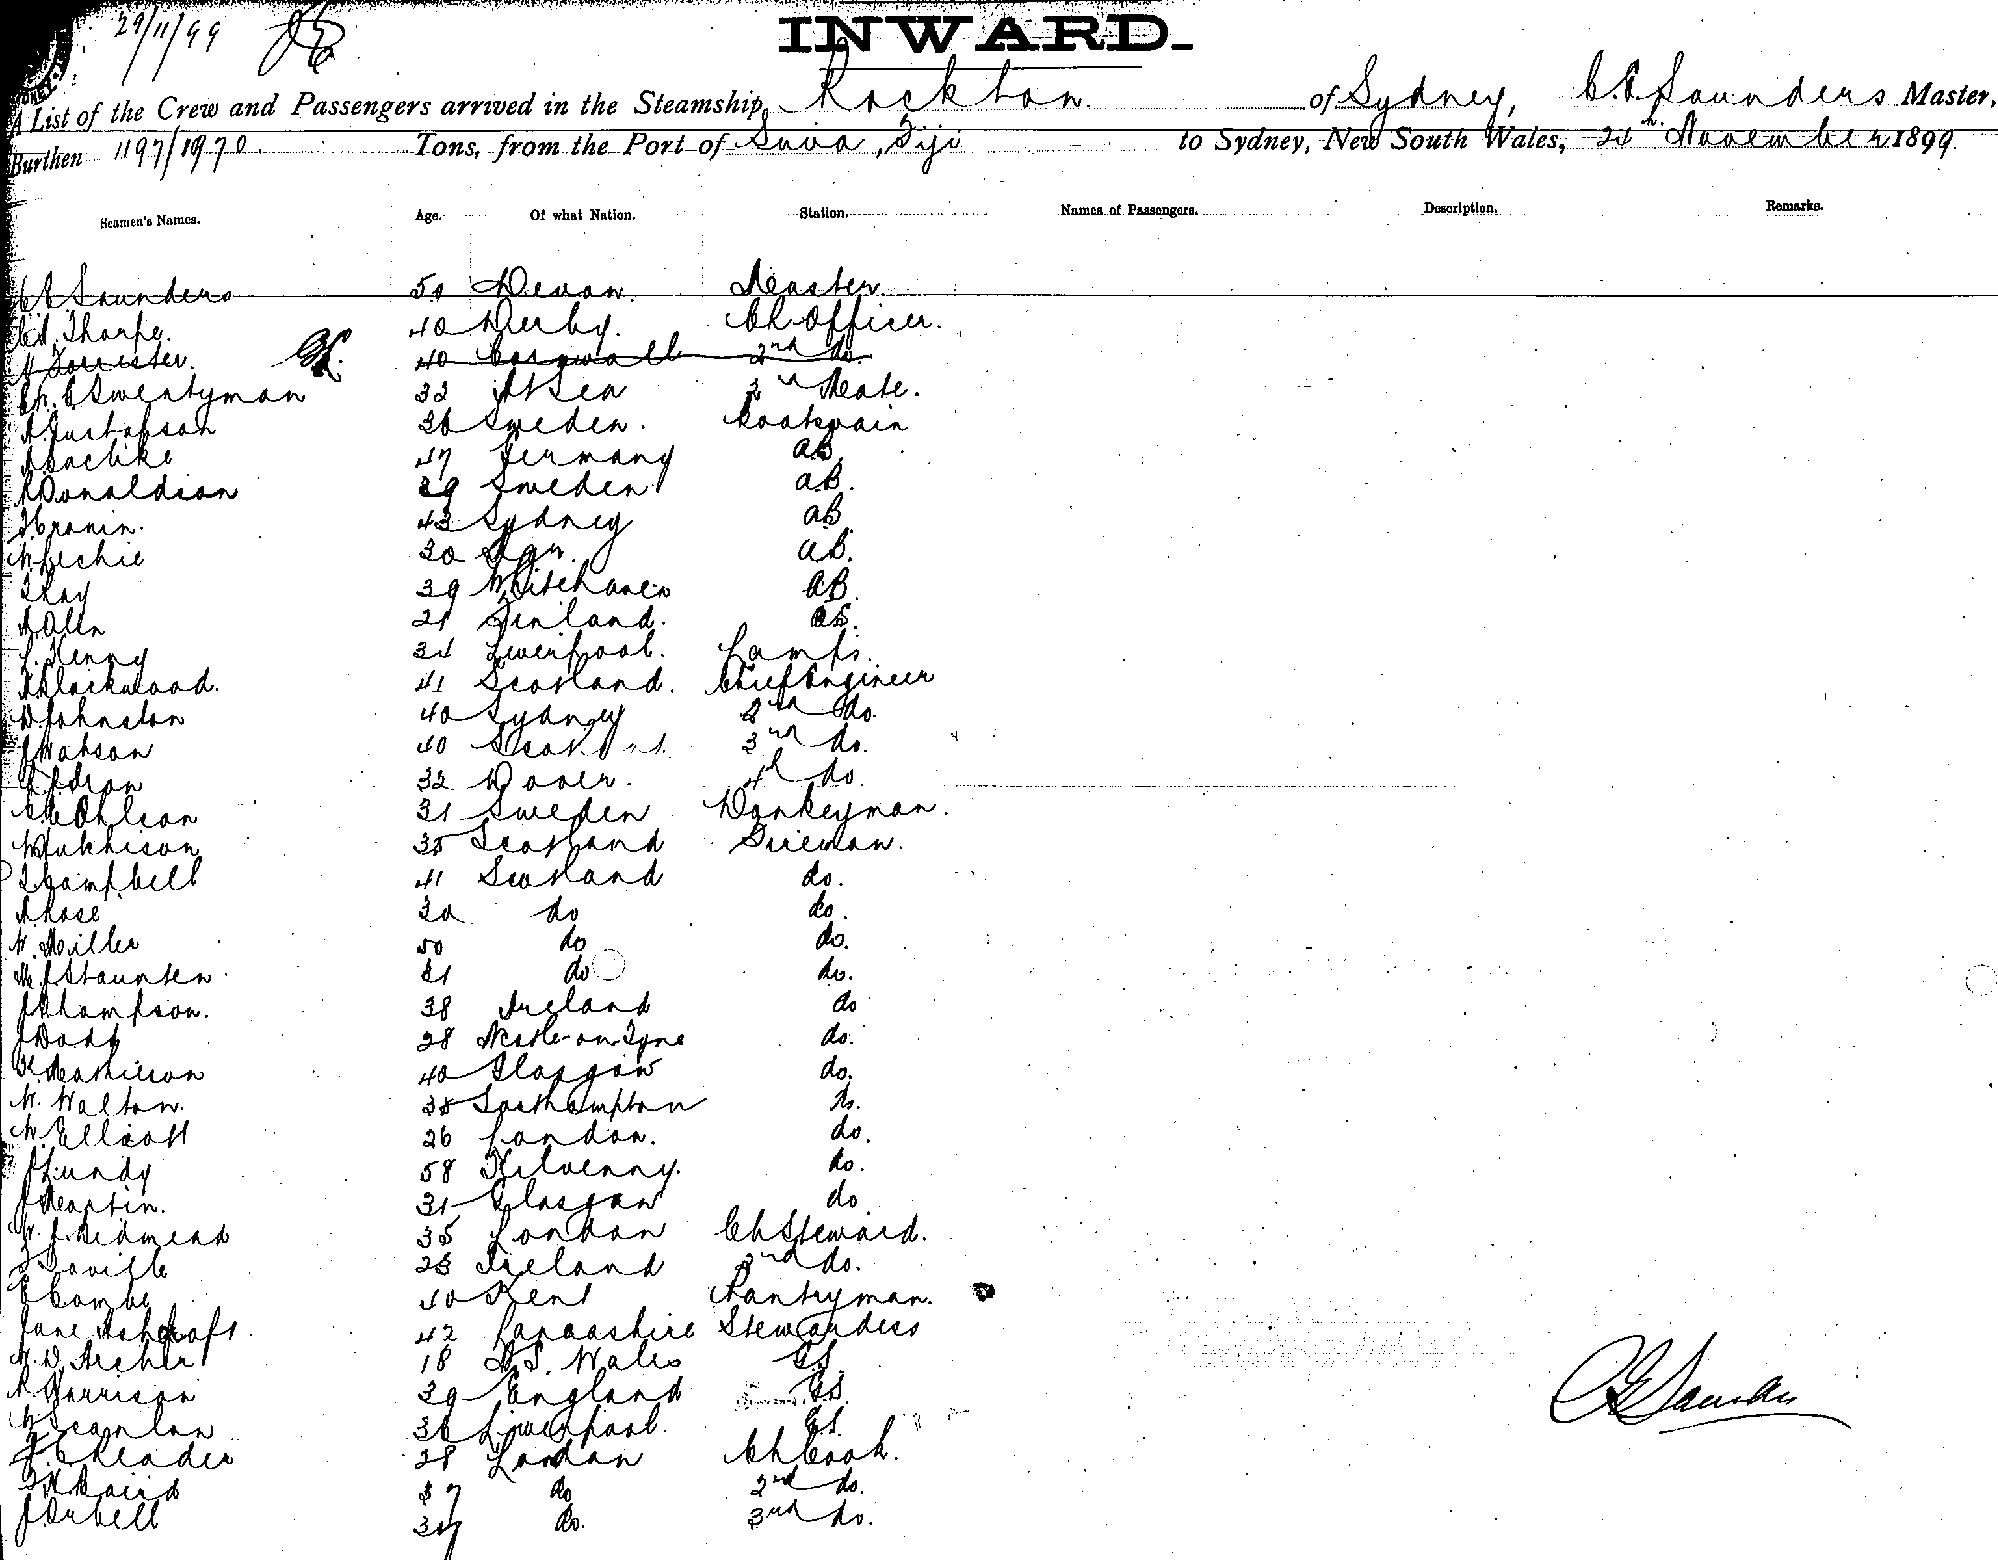 29/11/99
INWARD.
A List of the Crew and Passengers arrived in the Steamship, Rockton of Sydney, C. E. Saunders Master,
Burthen 1197/1970 Tons, from the Port of Suva, Fiji to Sydney, New South Wales, November 1899.
Seamen's Names. Age. Of what Nation. Station. Names of Passengers. Description. Remarks.
Saunders 50 Devon. Master.
Thorpe. 40 Derby. Ch Officer.
Forrester. 40 Cornwall 2nd do.
Swentyman 32 At Sea 2nd Mate.
A Gustafson 36 Sweden. Boatswain
47 Germany AB
Donaldson 29 Sweden AB.
Cronin. 43 Sydney AB
30 AB.
Kay 39 Whitehaven AB.
21 Finland. OS.
Kenny 34 Liverpool. Lamps.
Blackwood. 41 Scotland. Chief Engineer
D Johnston 40 Sydney 2nd do.
J Watson 40 Scotland 3rd do.
32 Dover. 4th do
Ohlson 31 Sweden Donkeyman.
Hutchison 35 Scotland Fireman.
Campbell 41 Scotland do.
A Rose 30 do do.
W. Miller 50 do do.
Staunten 21 do do.
J Thompson. 38 Ireland do
J Dodd 28 Ncstle-on-Tyne do.
Mathieson 40 Glasgow do.
W. Walton. 38 Southampton do.
W. Ellicott 26 London. do.
J Lundy 58 Kilvenny. do.
J Martin. 31 Glasgow do
Bidmead 35 London Ch Steward.
Saville 23 Ireland 2nd do.
E Combe 40 Kent Pantryman.
Jane Ashcroft. 42 Lancashire Stewardess
W. D. Archer 18 N. S. Wales GS.
Harrison 29 England GS.
Scanlon 36 Liverpool. GS.
Reader 28 London Ch Cook.
Baird 37 do 2nd do.
J Orbell 37 do. 3rd do.
C E Saunders